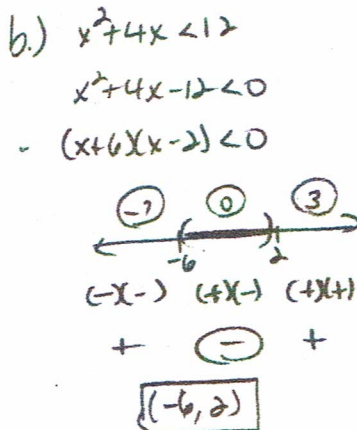 b.) x²+4x<12
x²+4x-12<0
(x+6)(x-2)<0
-7 0 3
-6 2
(-)(-) (+)(-) (+)(+)
+ - +
(-6, 2)